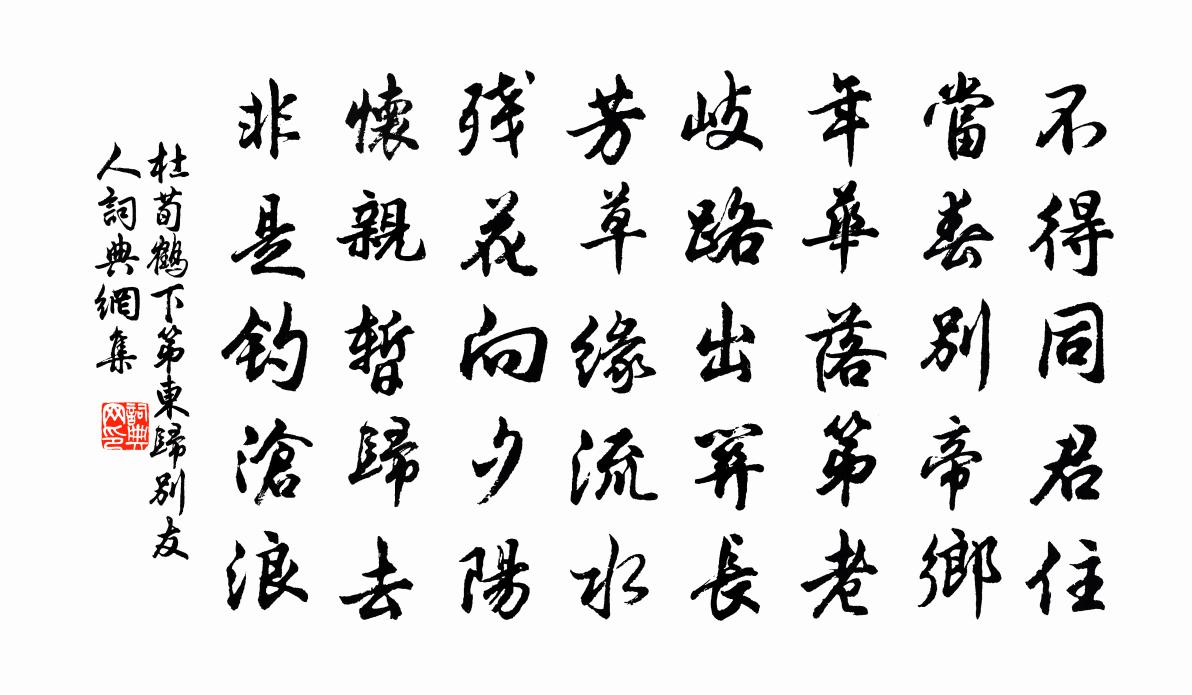 不得同君住
當春別帝鄉
年華落第老
岐路出關長
芳草緣流水
殘花向夕陽
懷親暫歸去
非是釣滄浪
杜荀鶴下第東歸別友
人詞典網集
詞典
网印